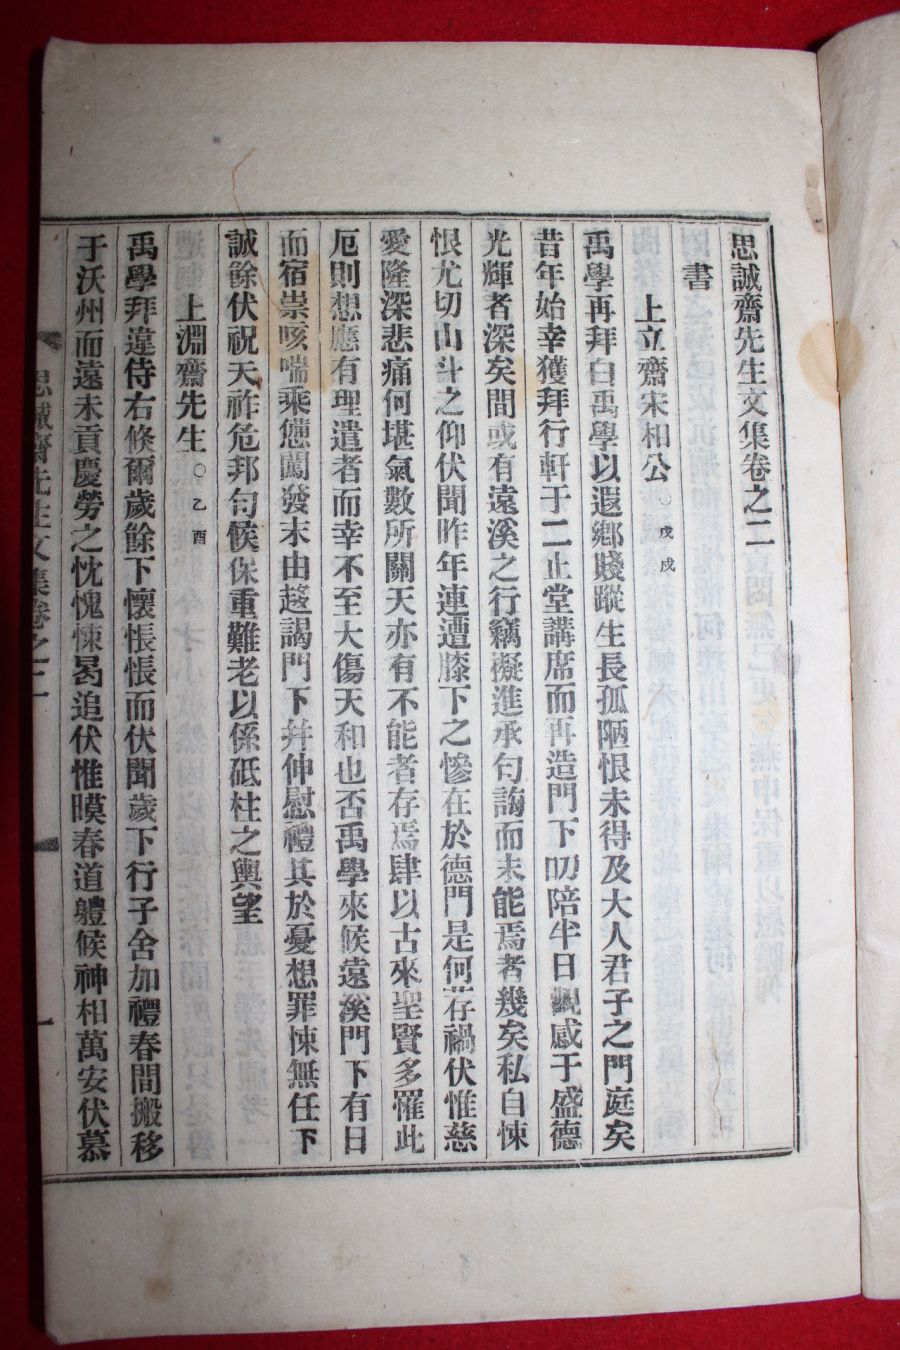 思誠齋先生文集卷之二
書
上立齋宋相公○戊戌
禹學再拜白禹學以遐鄕賤蹤生長孤陋恨未得及大人君子之門庭矣
昔年始幸獲拜行軒于二止堂講席而再造門下叨陪半日觀感于盛德
光輝者深矣間或有遠溪之行竊擬進承匀誨而未能焉者幾矣私自悚
恨尤切山斗之仰伏聞昨年連遭膝下之慘在於德門是何荐禍伏惟慈
愛隆深悲痛何堪氣數所關天亦有不能者存焉肆以古來聖賢多罹此
厄則想應有理遣者而幸不至大傷天和也否禹學來候遠溪門下有日
而宿祟咳喘乘憊闖發末由趍謁門下幷伸慰禮其於憂想罪悚無任下
誠餘伏祝天祚危邦匀候保重難老以係砥柱之輿望
上淵齋先生○乙酉
禹學拜違侍右倏爾歲餘下懷悵悵而伏聞歲下行子舍加禮春間搬移
于沃州而遠未貢慶勞之忱愧悚曷追伏惟暯春道軆候神相萬安伏慕
思誠齋先生文集卷之二 一